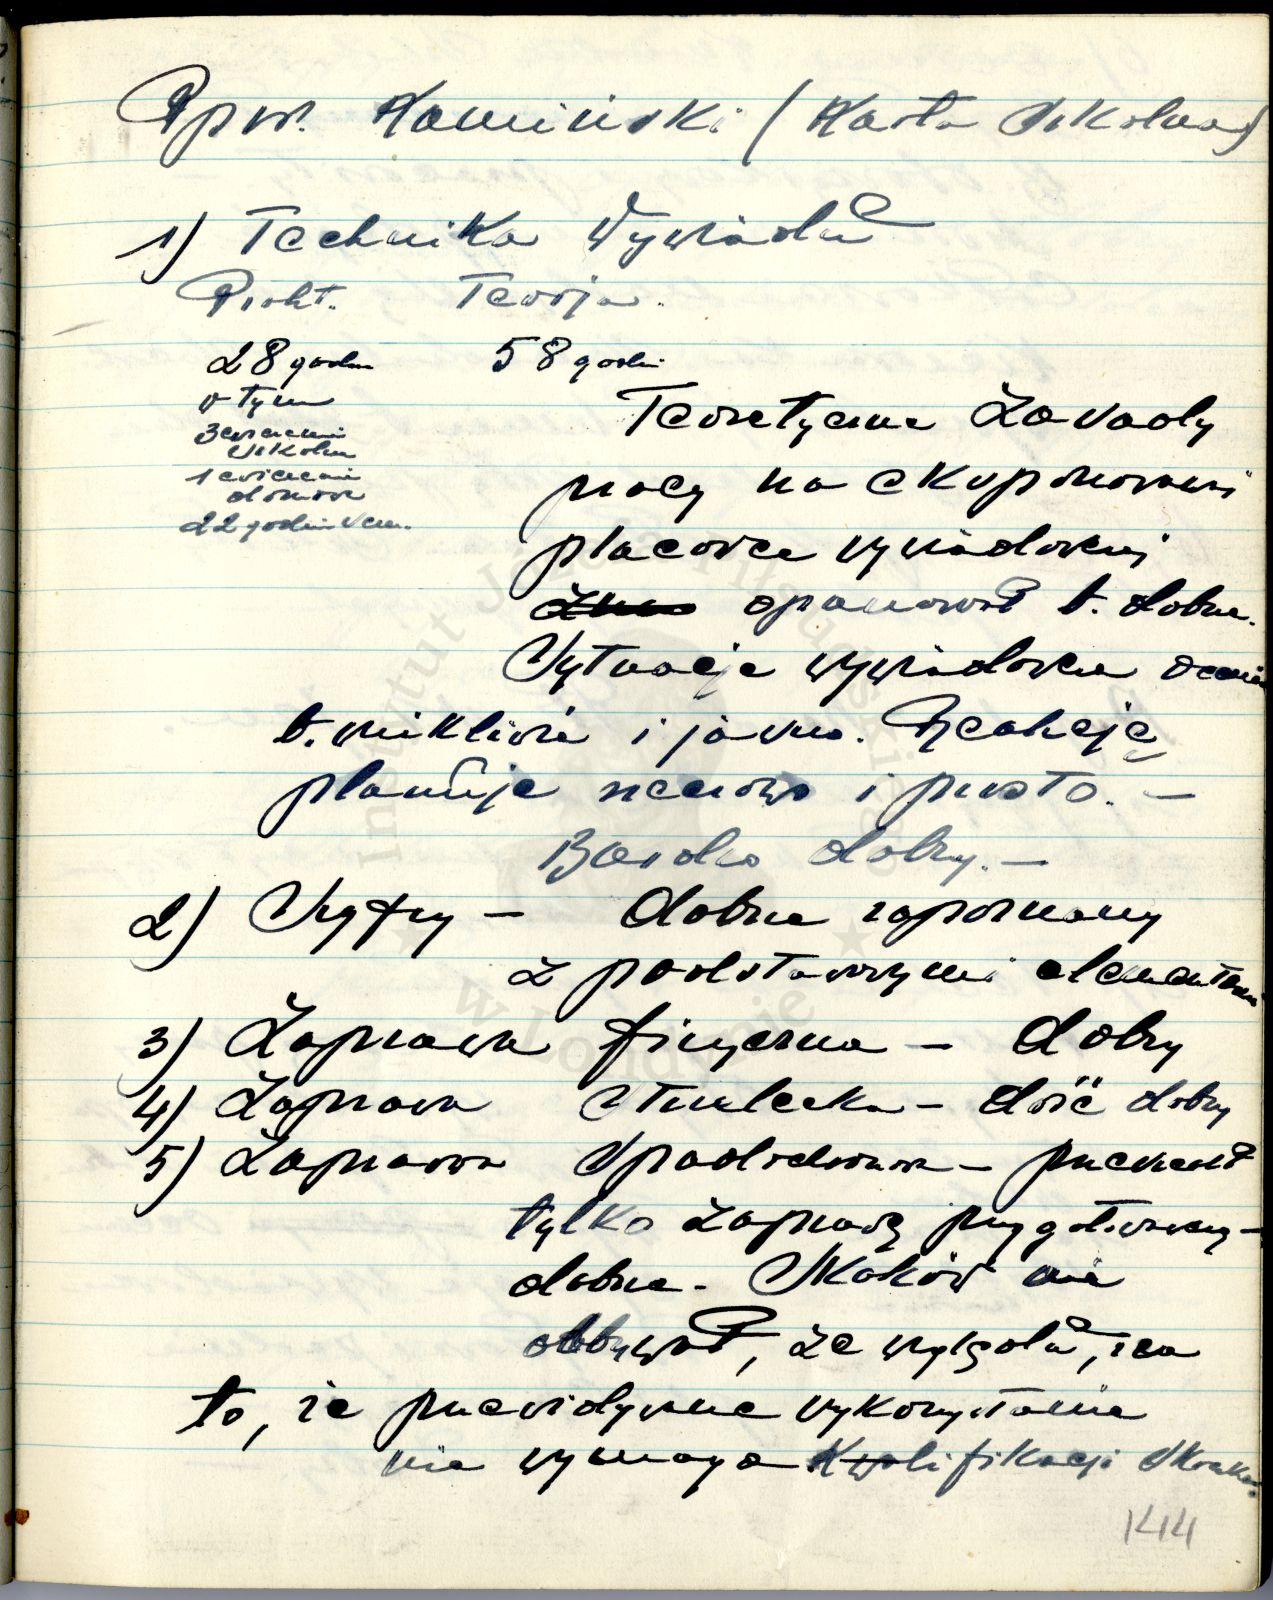 Ppor. Kamiński (Karta Szkolna)
1) Technika Wywiadu
Prakt. Teorja.
28 godzin 58 godzin
w tym
3 ćwiczenia
szkolne
1 ćwiczenie
domowe
22 godzin
Teoretyczne zasady
pracy na eksponowanej
placówce wywiadowczej
opanował b. dobrze.
Sytuacje wywiadowcze ocenia
b. wnikliwie i jasno.
planuje rzeczowo i prosto. –
Bardzo dobry. –
2) Szyfry – dobrze zapoznany
z podstawowymi elementami
3) Zaprawa fizyczna – dobry
4) Zaprawa strzelecka – dość dobry
5) Zaprawa spadochronowa – przeszedł
tylko zaprawę przygotowawczą –
dobrze. Skoków nie
odbywał, ze względu, na
to, że przewidywane wykorzystanie
nie wymaga kwalifikacji skoczka.
144
Instytut Józefa Piłsudskiego
w Londynie